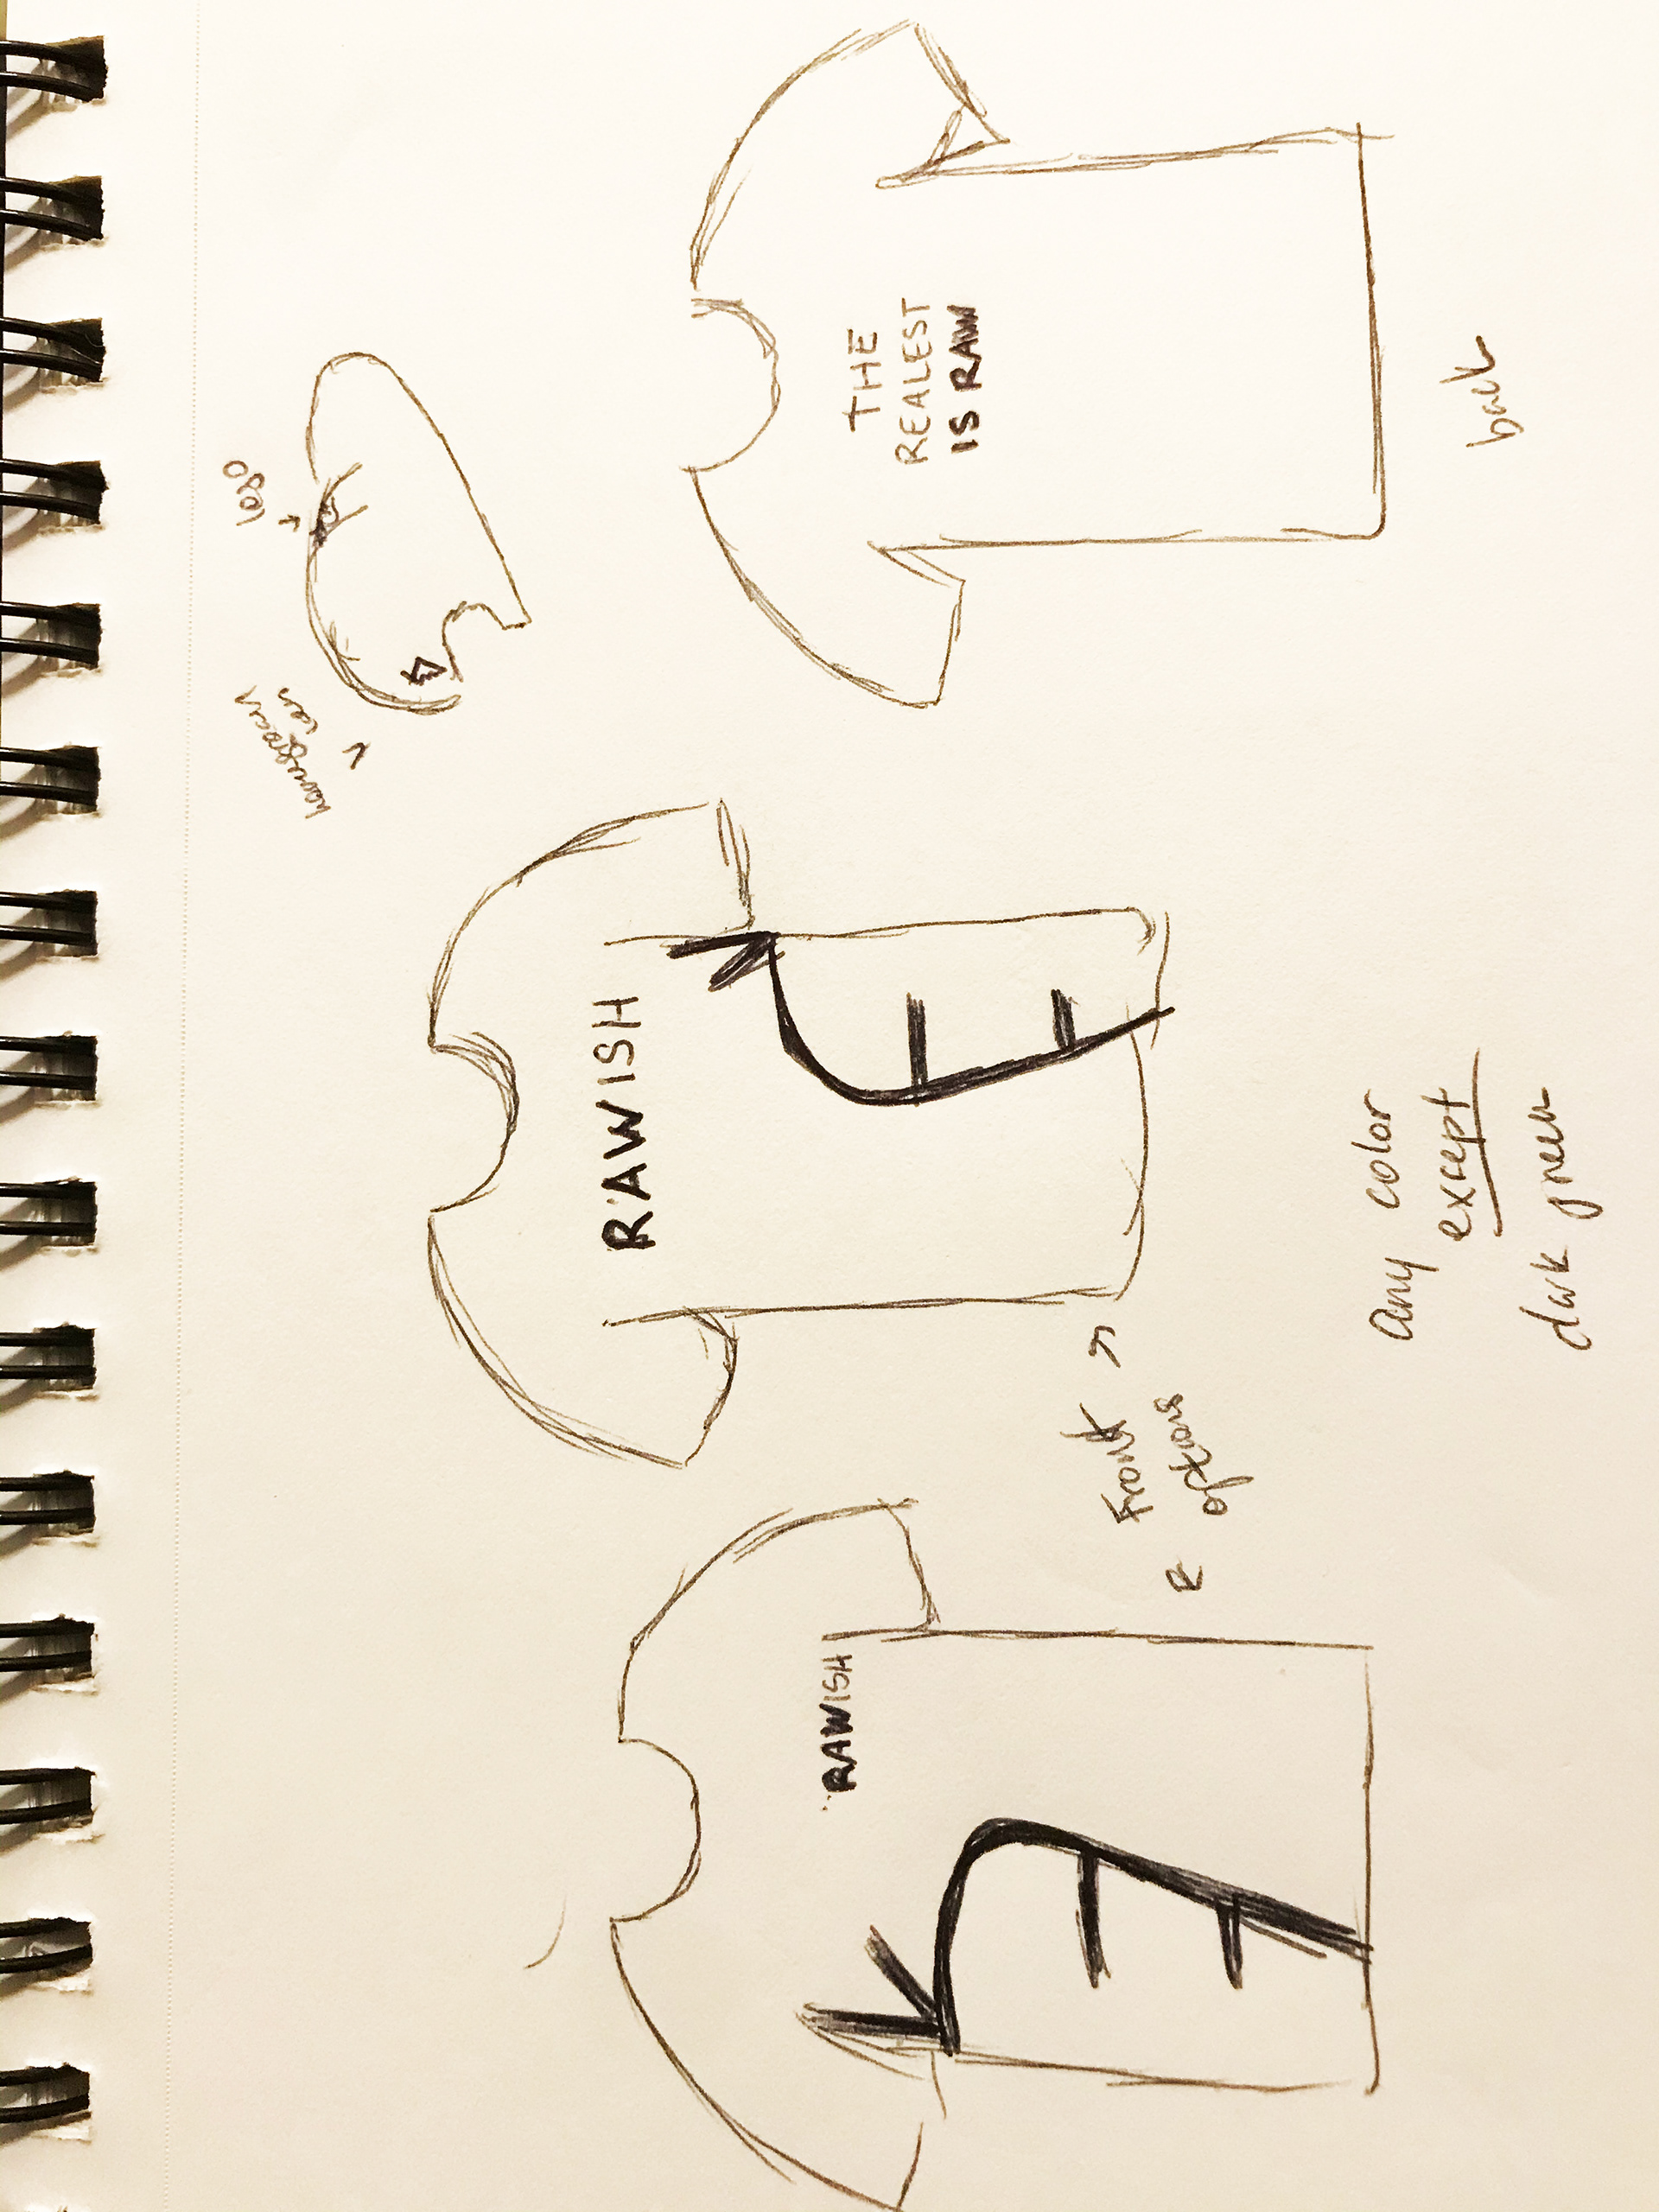 RAWISH
RAWISH
Front
options
any color
except
dark green
logo
THE
REALEST
IS RAW
back